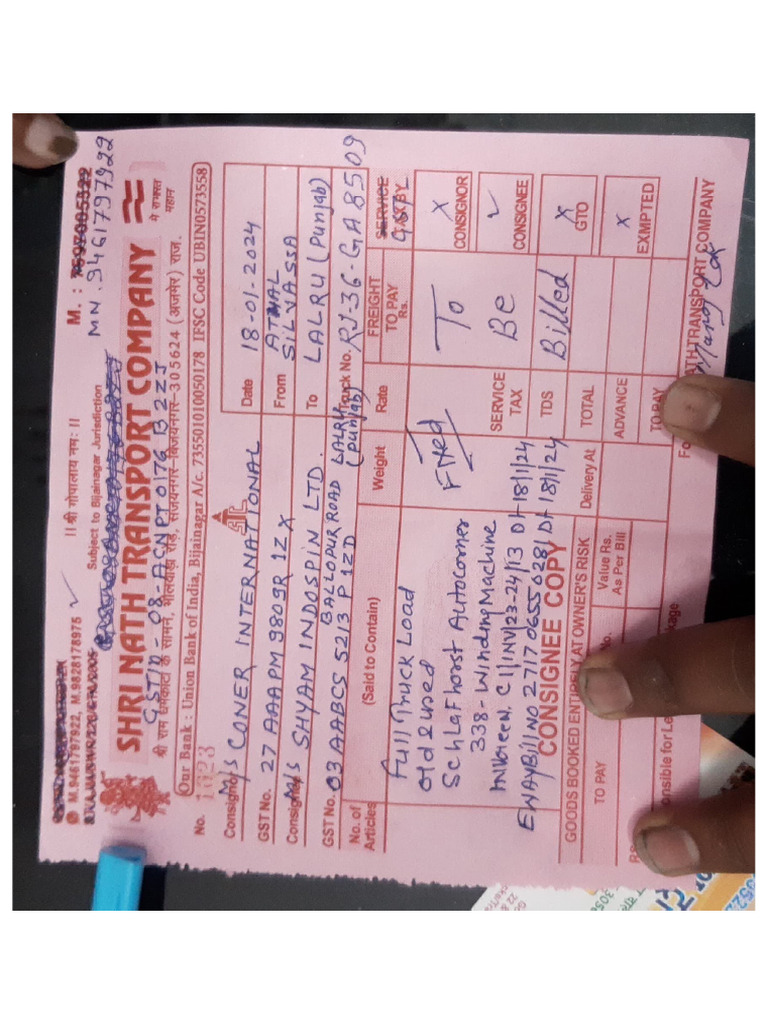 ।। श्री गोपालाय नमः ।।
M. :
MN. 9461797922
M.9461797922, M.9828178975
Subject to Bijainagar Jurisdiction
SHRI NATH TRANSPORT COMPANY
जे रामसा
महान
GSTID-08-ACNPT0176 B2ZJ
श्री राम धर्मकांटा के सामने, भीलवाड़ा रोड़, संजयनगर- बिजयनगर-305624 (अजमेर) राज.
Our Bank : Union Bank of India, Bijainagar A/c. 735501010050178 IFSC Code UBIN0573558
No.
Date 18-01-2024
Consignor M/s CONER INTERNATIONAL
GST No. 27AAAPM9809R1ZX
From ATHAL SILVASSA
Consignee M/s SHYAM INDOSPIN LTD.
To LALRU (Punjab)
BALLOPUR ROAD LALRU (Punjab)
GST No. 03AABCS5213P1ZD
Truck No. RJ-36-GA8509
No. of Articles
(Said to Contain)
Weight
Rate
FREIGHT TO PAY Rs.
SERVICE
BY
Full Truck Load
Fixed
To
x
CONSIGNOR
Old & used
Schlafhorst Autoconer
338-Winding Machine
SERVICE TAX
Be
✓
CONSIGNEE
CI/INV/23-24/13 Dt 18/1/24
EWAYBill NO
Dt 18/1/24
TDS
Billed
x
GTO
CONSIGNEE COPY
TOTAL
x
EXMPTED
GOODS BOOKED ENTIRELY AT OWNER'S RISK
Delivery At
ADVANCE
TO PAY
No.
Value Rs. As Per Bill
TO PAY
TRANSPORT COMPANY